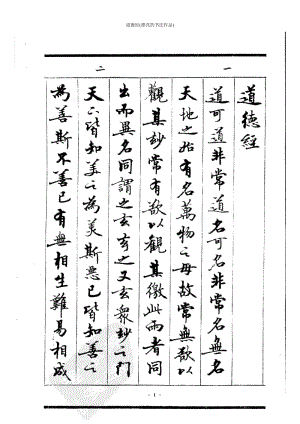 道德经(漂亮的书法作品)
一
二
道德经
道可道非常道名可名非常名無名
天地之始有名萬物之母故常無欲以
觀其妙常有欲以觀其徼此兩者同
出而異名同謂之玄玄之又玄衆妙之门
天下皆知美之為美斯惡已皆知善之
為善斯不善已有無相生難易相成
- 1 -